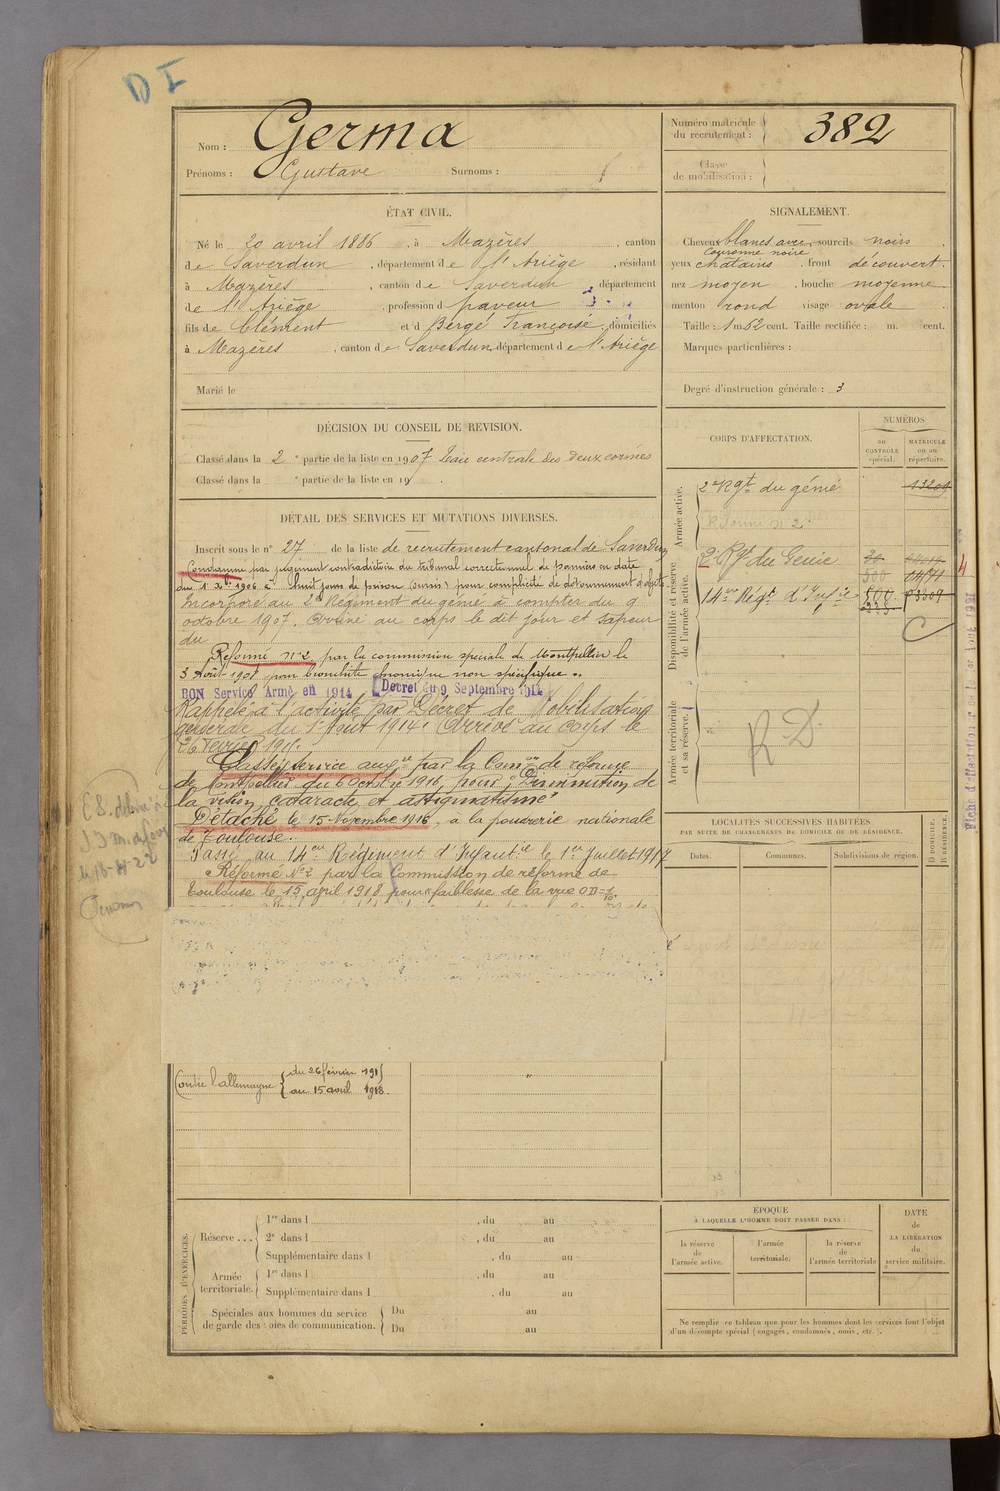 D I
Nom : Germa
Prénoms : Gustave Surnoms :
Numéro matricule du recrutement : 382
Classe de mobilisation :
ÉTAT CIVIL.
Né le 20 avril 1886, à Mazères, canton
de Saverdun, département de l'Ariège, résidant
à Mazères, canton de Saverdun, département
de l'Ariège, profession de paveur
fils de Clément et d Bergé Françoise, domiciliés
à Mazères, canton de Saverdun, département de l'Ariège
Marié le
SIGNALEMENT.
Cheveux blancs avec couronne noire, sourcils noirs
yeux chatains, front découvert.
nez moyen, bouche moyenne
menton rond visage ovale
Taille : 1 m 62 cent. Taille rectifiée : m. cent.
Marques particulières :
Degré d'instruction générale : 3
DÉCISION DU CONSEIL DE REVISION.
Classé dans la 2e partie de la liste en 1907
Classé dans la e partie de la liste en 19 .
DÉTAIL DES SERVICES ET MUTATIONS DIVERSES.
Inscrit sous le n° 27 de la liste de recrutement cantonal de Saverdun
Condamné par jugement contradictoire du tribunal correctionnel de Pamiers en date
du 1 1906 à huit jours de prison (sursis) pour complicité de détournement d'objets
Incorporé au 2e Régiment du génie à compter du 9
octobre 1907. Arrivé au corps le dit jour et sapeur
du
Réformé n°2 par la commission spéciale de Montpellier le
3 Août 1908 pour bronchite chronique non spécifique.
BON Service Armé en 1914 Décret du 9 Septembre 1914
Rappelé à l'activité par Décret de Mobilisation
générale du 1er Août 1914. Arrivé au Corps le
26 février 1915.
Classé service auxre par la Comon de réforme
de Montpellier du 6 Octobre 1916, pour "Diminution de
la vision, cataracte et astigmatisme"
Détaché le 15 Novembre 1916, à la poudrerie nationale
de Toulouse.
Passé au 14eme Régiment d'Infantie le 1er Juillet 1917
Réformé N°2 par la Commission de réforme de
Toulouse le 15 avril 1918 pour faiblesse de la vue OD=1/10
Contre l'allemagne { du 26 février 1915
au 15 avril 1918.
CORPS D'AFFECTATION.
NUMÉROS
au contrôle spécial.
MATRICULE ou au répertoire.
Armée active.
2e Rgt du génie 13209
Réformé n°2
Disponibilité et réserve de l'armée active.
2e Rgt du Génie
500 04171
14eme Régt d'Infie 500
Armée territoriale et sa réserve.
R.D.
LOCALITÉS SUCCESSIVES HABITÉES
PAR SUITE DE CHANGEMENTS DE DOMICILE OU DE RÉSIDENCE.
Dates. Communes. Subdivisions de région. D DOMICILE. R RÉSIDENCE.
PÉRIODES D'EXERCICES.
Réserve ... { 1re dans l , du au
2e dans l , du au
Supplémentaire dans l , du au
Armée territoriale. { 1re dans l , du au
Supplémentaire dans l , du au
Spéciales aux hommes du service de garde des voies de communication. { Du au
Du au
ÉPOQUE
À LAQUELLE L'HOMME DOIT PASSER DANS :
la réserve de l'armée active.
l'armée territoriale.
la réserve de l'armée territoriale
DATE de LA LIBÉRATION du service militaire.
Ne remplir ce tableau que pour les hommes dont les services font l'objet
d'un décompte spécial (engagés, condamnés, omis, etc.).